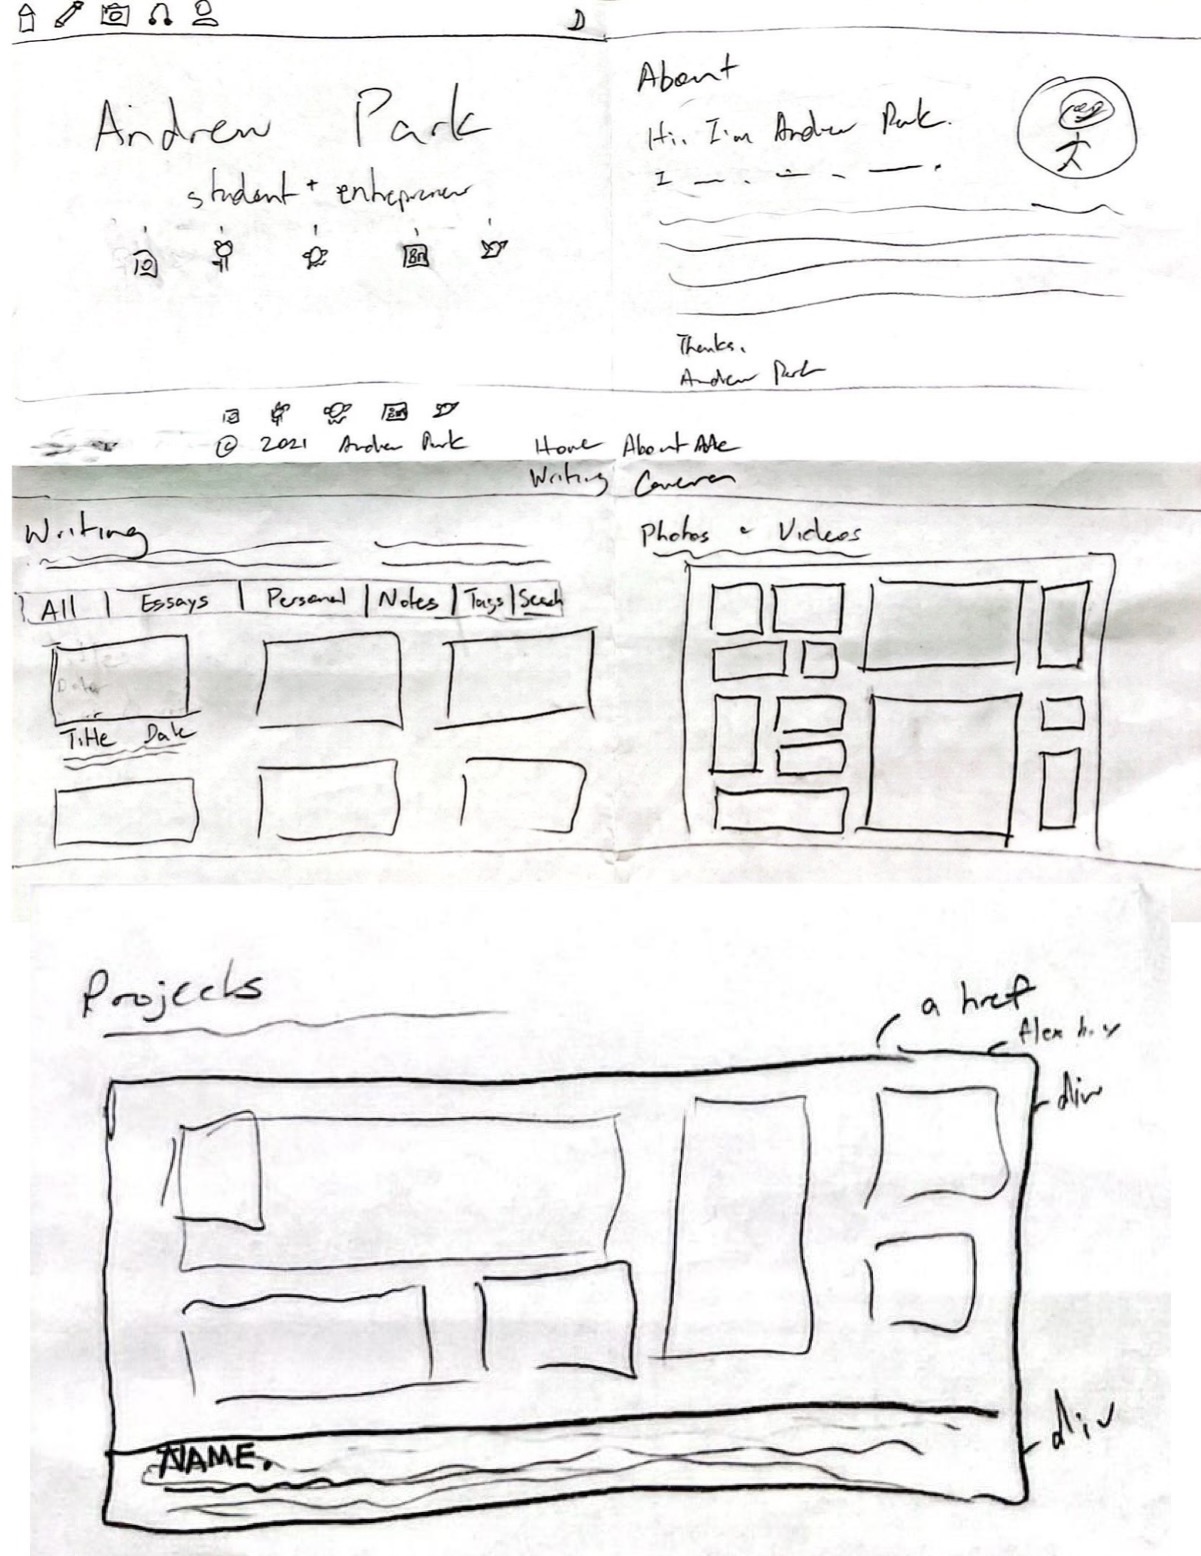 Andrew Park
student + entrepreneur
About
Hi. I'm Andrew Park.
I
Thanks,
Andrew Park
© 2021 Andrew Park
Home About Me
Writing Camera
Writing
All | Essays | Personal | Notes | Tags | Search
Title Date
Photos + Videos
Projects
a href
flex box
div
NAME.
div